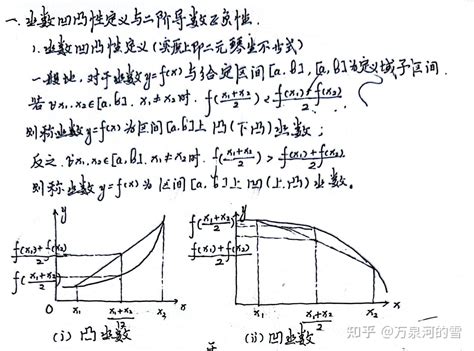 一、函数凹凸性定义与二阶导数正负性.
1. 函数凹凸性定义(实质上即二元琴生不等式)
一般地, 对于函数y=f(x)与给定区间[a,b], [a,b]为定义域子区间.
若∀x₁,x₂∈[a,b], x₁≠x₂时, f((x₁+x₂)/2) < (f(x₁)+f(x₂))/2
则称函数y=f(x)为区间[a,b]上凸(下凸)函数;
反之, ∀x₁,x₂∈[a,b], x₁≠x₂时, f((x₁+x₂)/2) > (f(x₁)+f(x₂))/2
则称函数y=f(x)为区间[a,b]上凹(上凸)函数。
y
(f(x₁)+f(x₂))/2
f((x₁+x₂)/2)
O x₁ (x₁+x₂)/2 x₂ x
(i) 凸函数
y
f((x₁+x₂)/2)
(f(x₁)+f(x₂))/2
x₁ (x₁+x₂)/2 x₂ x
(ii) 凹函数
知乎 @万泉河的雪